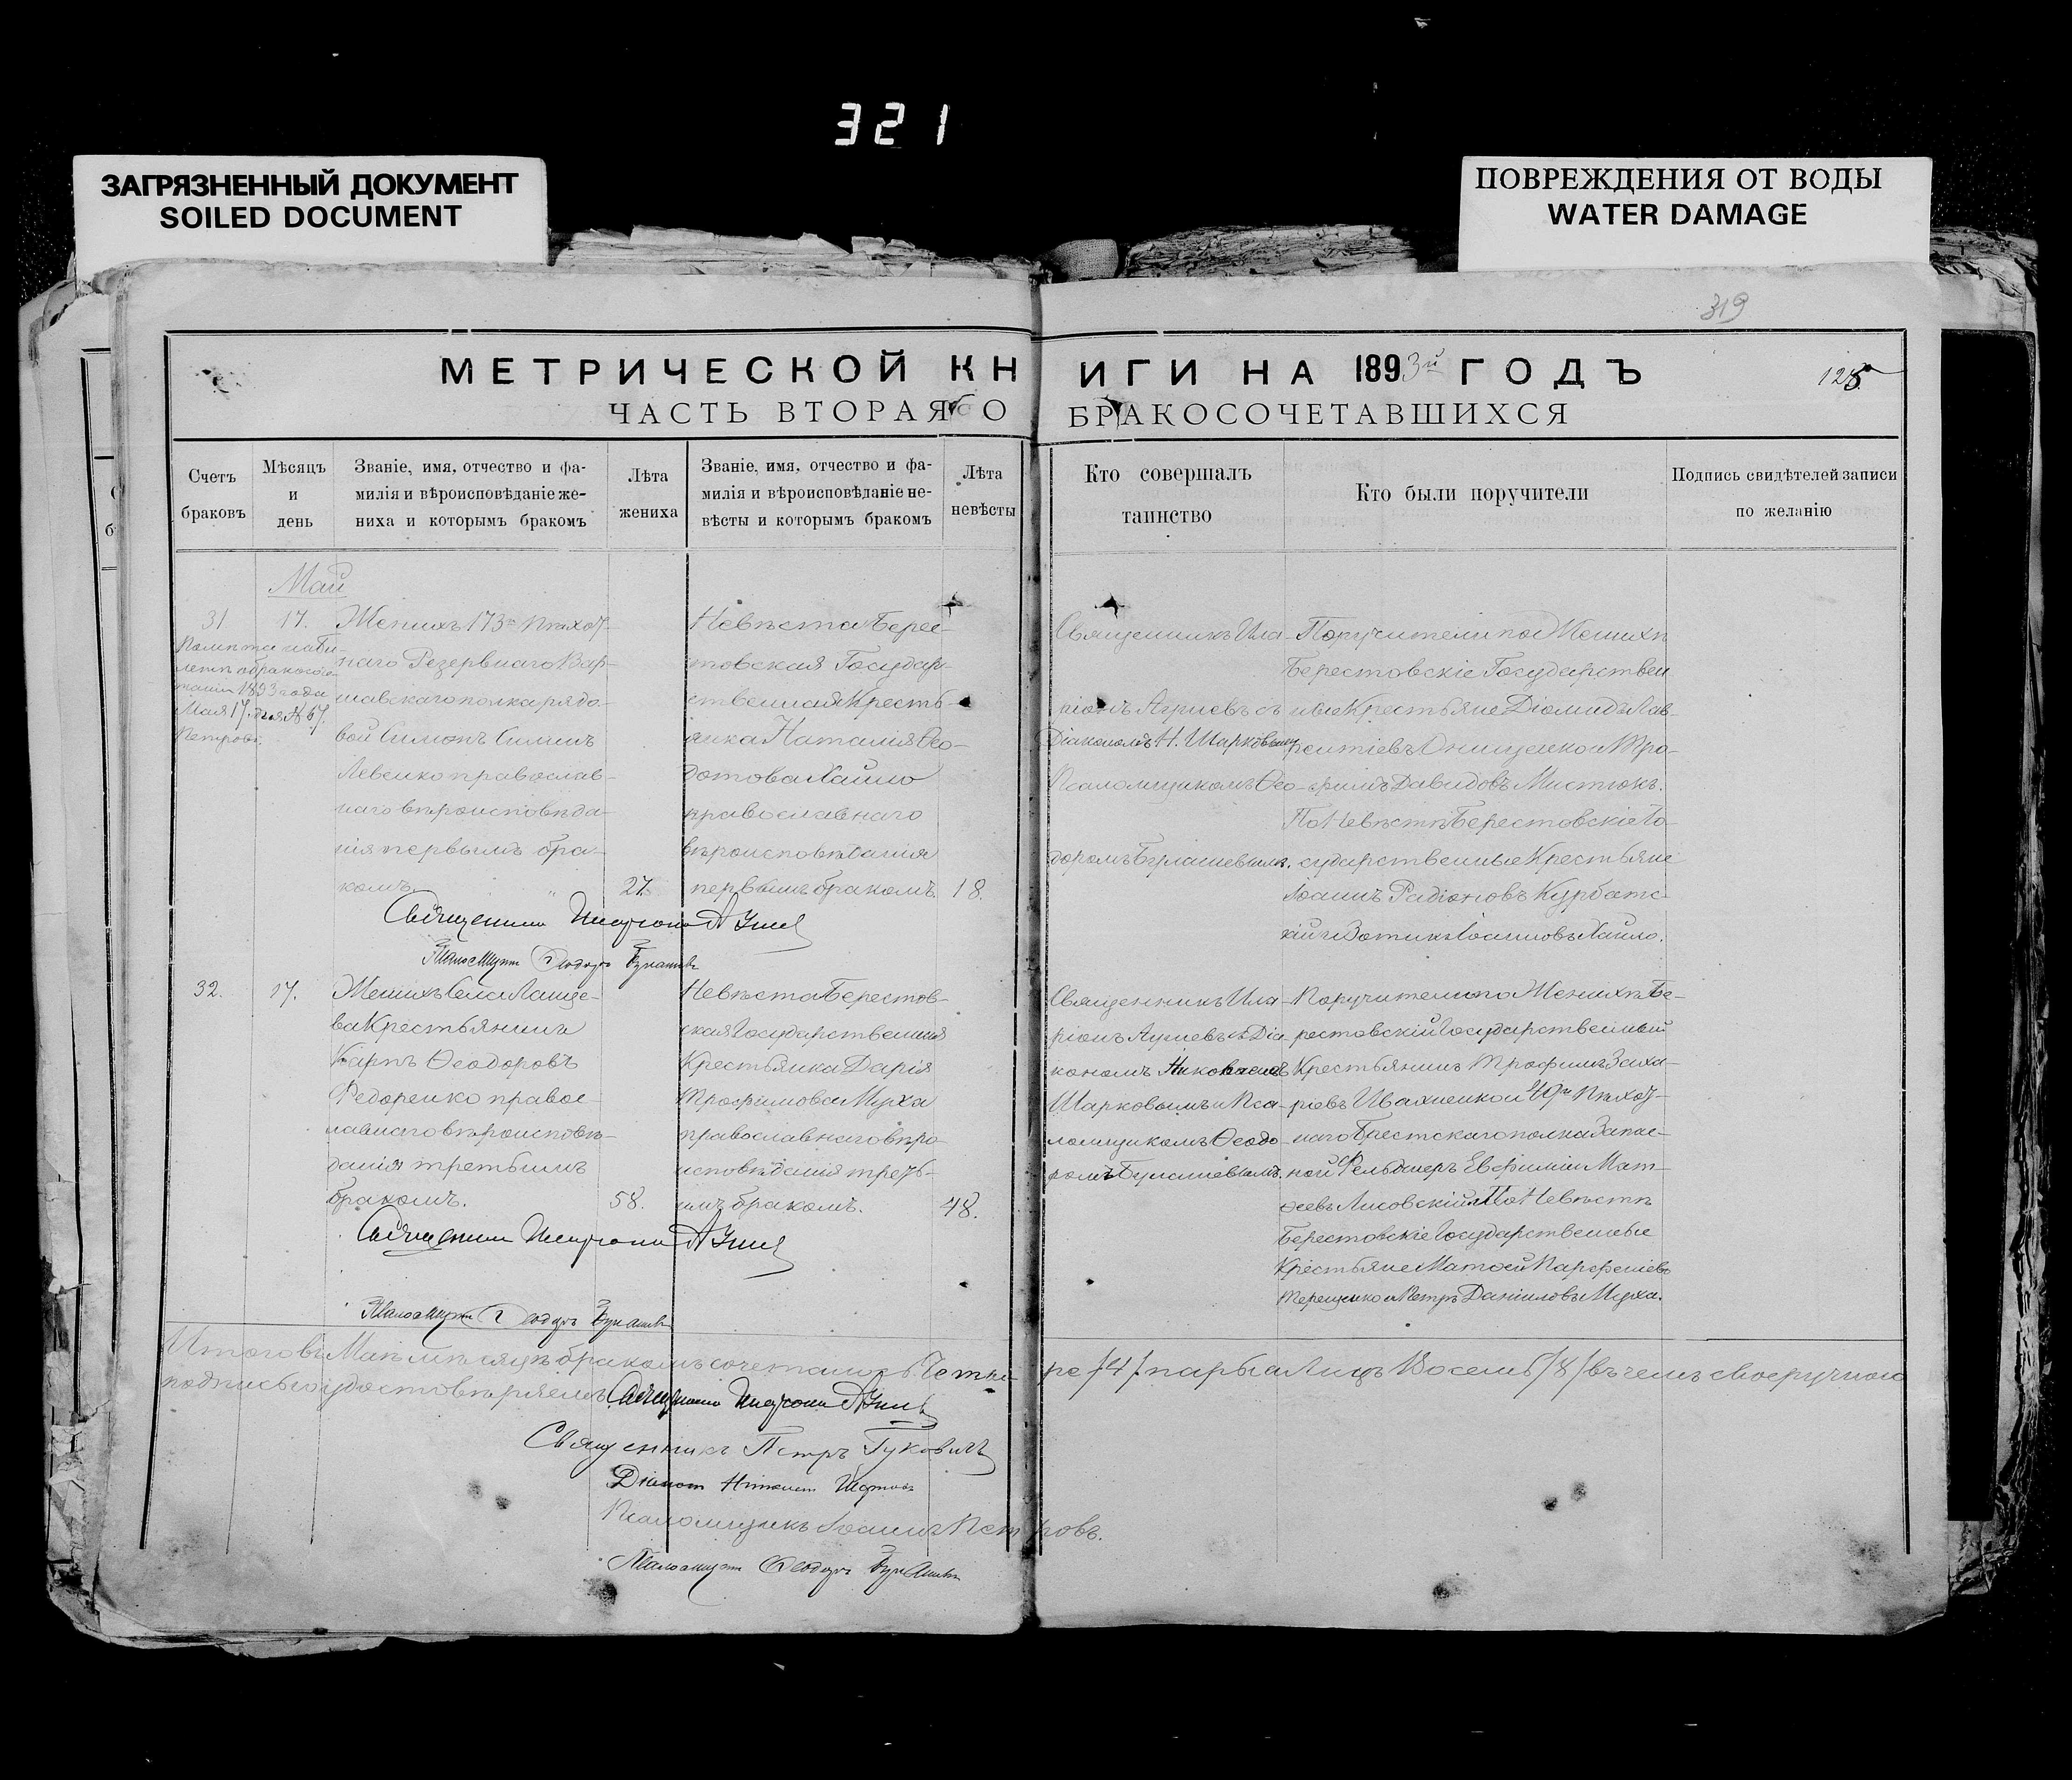 321
ЗАГРЯЗНЕННЫЙ ДОКУМЕНТ
SOILED DOCUMENT
ПОВРЕЖДЕНИЯ ОТ ВОДЫ
WATER DAMAGE
319
МЕТРИЧЕСКОЙ КНИГИ НА 1893й ГОДЪ
125
ЧАСТЬ ВТОРАЯ О БРАКОСОЧЕТАВШИХСЯ
Счетъ
браковъ
Мѣсяцъ
и
день
Званіе, имя, отчество и фа-
милія и вѣроисповѣданіе же-
ниха и которымъ бракомъ
Лѣта
жениха
Званіе, имя, отчество и фа-
милія и вѣроисповѣданіе не-
вѣсты и которымъ бракомъ
Лѣта
невѣсты
Кто совершалъ
таинство
Кто были поручители
Подпись свидѣтелей записи
по желанію
Май
31
Помѣта на би-
летѣ о бракосоче-
таніи 1893 года
Мая 17. дня № 67.
Петровъ.
17.
Женихъ 173го Пѣхот-
наго Резервнаго Вар-
шавскаго полка рядо-
вой Симонъ
Левенко православ-
наго вѣроисповѣда-
нія первымъ бра-
комъ.
27.
Невѣста Берес-
товская Государ-
ственная Кресть-
янка Наталія Ѳео-
дотова Хайло
православнаго
вѣроисповѣданія
первымъ бракомъ.
18.
Священникъ Ила-
ріонъ Агуіевъ съ
Діакономъ Н. Шарковымъ
Псаломщикомъ Ѳео-
доромъ Булашевымъ.
Поручители по Женихѣ
Берестовскіе Государствен
ные Крестьяне Діомидъ Лав-
рентіевъ Онищенко и Тро-
фимъ Давидовъ Мистюкъ.
По Невѣстѣ Берестовскіе Го-
сударственные Крестьяне
Іоаннъ Радіоновъ Курбатс-
кій и Зотикъ Іоанновъ Хайло.
Священникъ Иларіонъ
Псаломщикъ Ѳеодоръ Булашевъ
32.
17.
Женихъ Села
ва Крестьянинъ
Карпъ Ѳеодоровъ
Федоренко правос-
лавнаго вѣроисповѣ-
данія третьимъ
бракомъ.
58.
Невѣста Берестов-
ская Государственная
Крестьянка Дарія
Трофимова Муха
православнаго вѣро
исповѣданія треть-
имъ бракомъ.
48.
Священникъ Ила-
ріонъ Агуіевъ съ Діа
кономъ Николаемъ
Шарковымъ и Пса-
ломщикомъ Ѳеодо-
ромъ Булашевымъ.
Поручители по Женихѣ Бе-
рестовскій Государственный
Крестьянинъ Трофимъ Заха-
ріевъ Ивахненко и 49го Пѣхот-
наго Брестскаго полка Запас-
ной Фельдшеръ Евфимій Мат-
ѳеевъ Лисовскій. По Невѣстѣ
Берестовскіе Государственные
Крестьяне Матѳей Парфеніевъ
Терещенко и Петръ Даніиловъ Муха.
Священникъ Иларіонъ
Псаломщикъ Ѳеодоръ Булашевъ
Итого въ Маѣ мѣсяцѣ бракомъ сочеталось Четыре /4/ пары а Лицъ Восемь /8/ въ чемъ своеручною
подписью удостовѣряемъ. Священникъ Иларіонъ
Священникъ Петръ
Діаконъ Николай Шарковъ
Псаломщикъ Іоаннъ Петровъ.
Псаломщикъ Ѳеодоръ Булашевъ